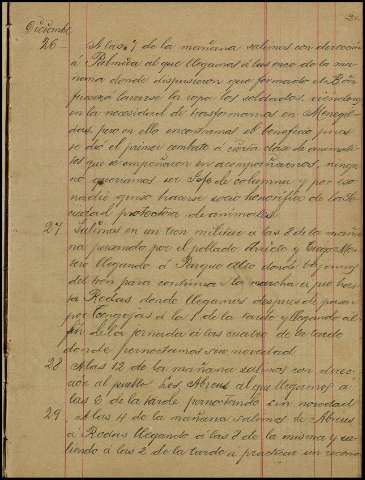 Diciembre
26 A las 7 de la mañana salimos con dirección
á Palmira al que llegamos á las once de la ma
ñana donde dispusieron que formado el Bón
fuesen á lavarse la ropa los soldados, viéndonos
en la necesidad de trasformarnos en
por en ello encontramos el beneficio pues
se dió el primer combate á cierta clase de animali
tos que se empeñaron en acompañarnos, ningu
no queriamos ser Jefe de columna y por eso
nadie quiso hacerse socio honorífico de la So
ciedad protectora de animales.
27 Salimos en un tren militar a las 8 de la maña
na pasando por el poblado Arriete y Ciego Mon
tero llegando á Parque Alto donde bajamos
del tren para continuar la marcha á pié has
ta Rodas donde llegamos despues de pasar
por Congojas á la 1 de la tarde y llegando al
fin de la jornada á las cuatro de la tarde
donde pernoctamos sin novedad
28 A las 12 de la mañana salimos con direc
ción al pueblo Los Abreus al que llegamos á
las 6 de la tarde pernoctando sin novedad
29 A las 4 de la mañana salimos de Abreus
á Rodas llegando á las 8 de la misma y sa
liendo á las 2 de la tarde a practicar un recono